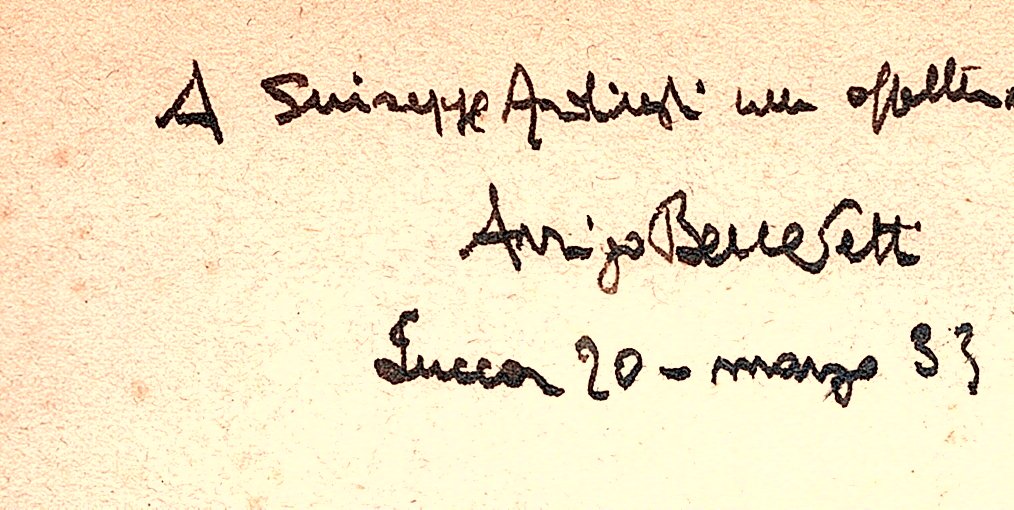 A Giuseppe con affetto
Arrigo Benedetti
Lucca 20 - marzo 33